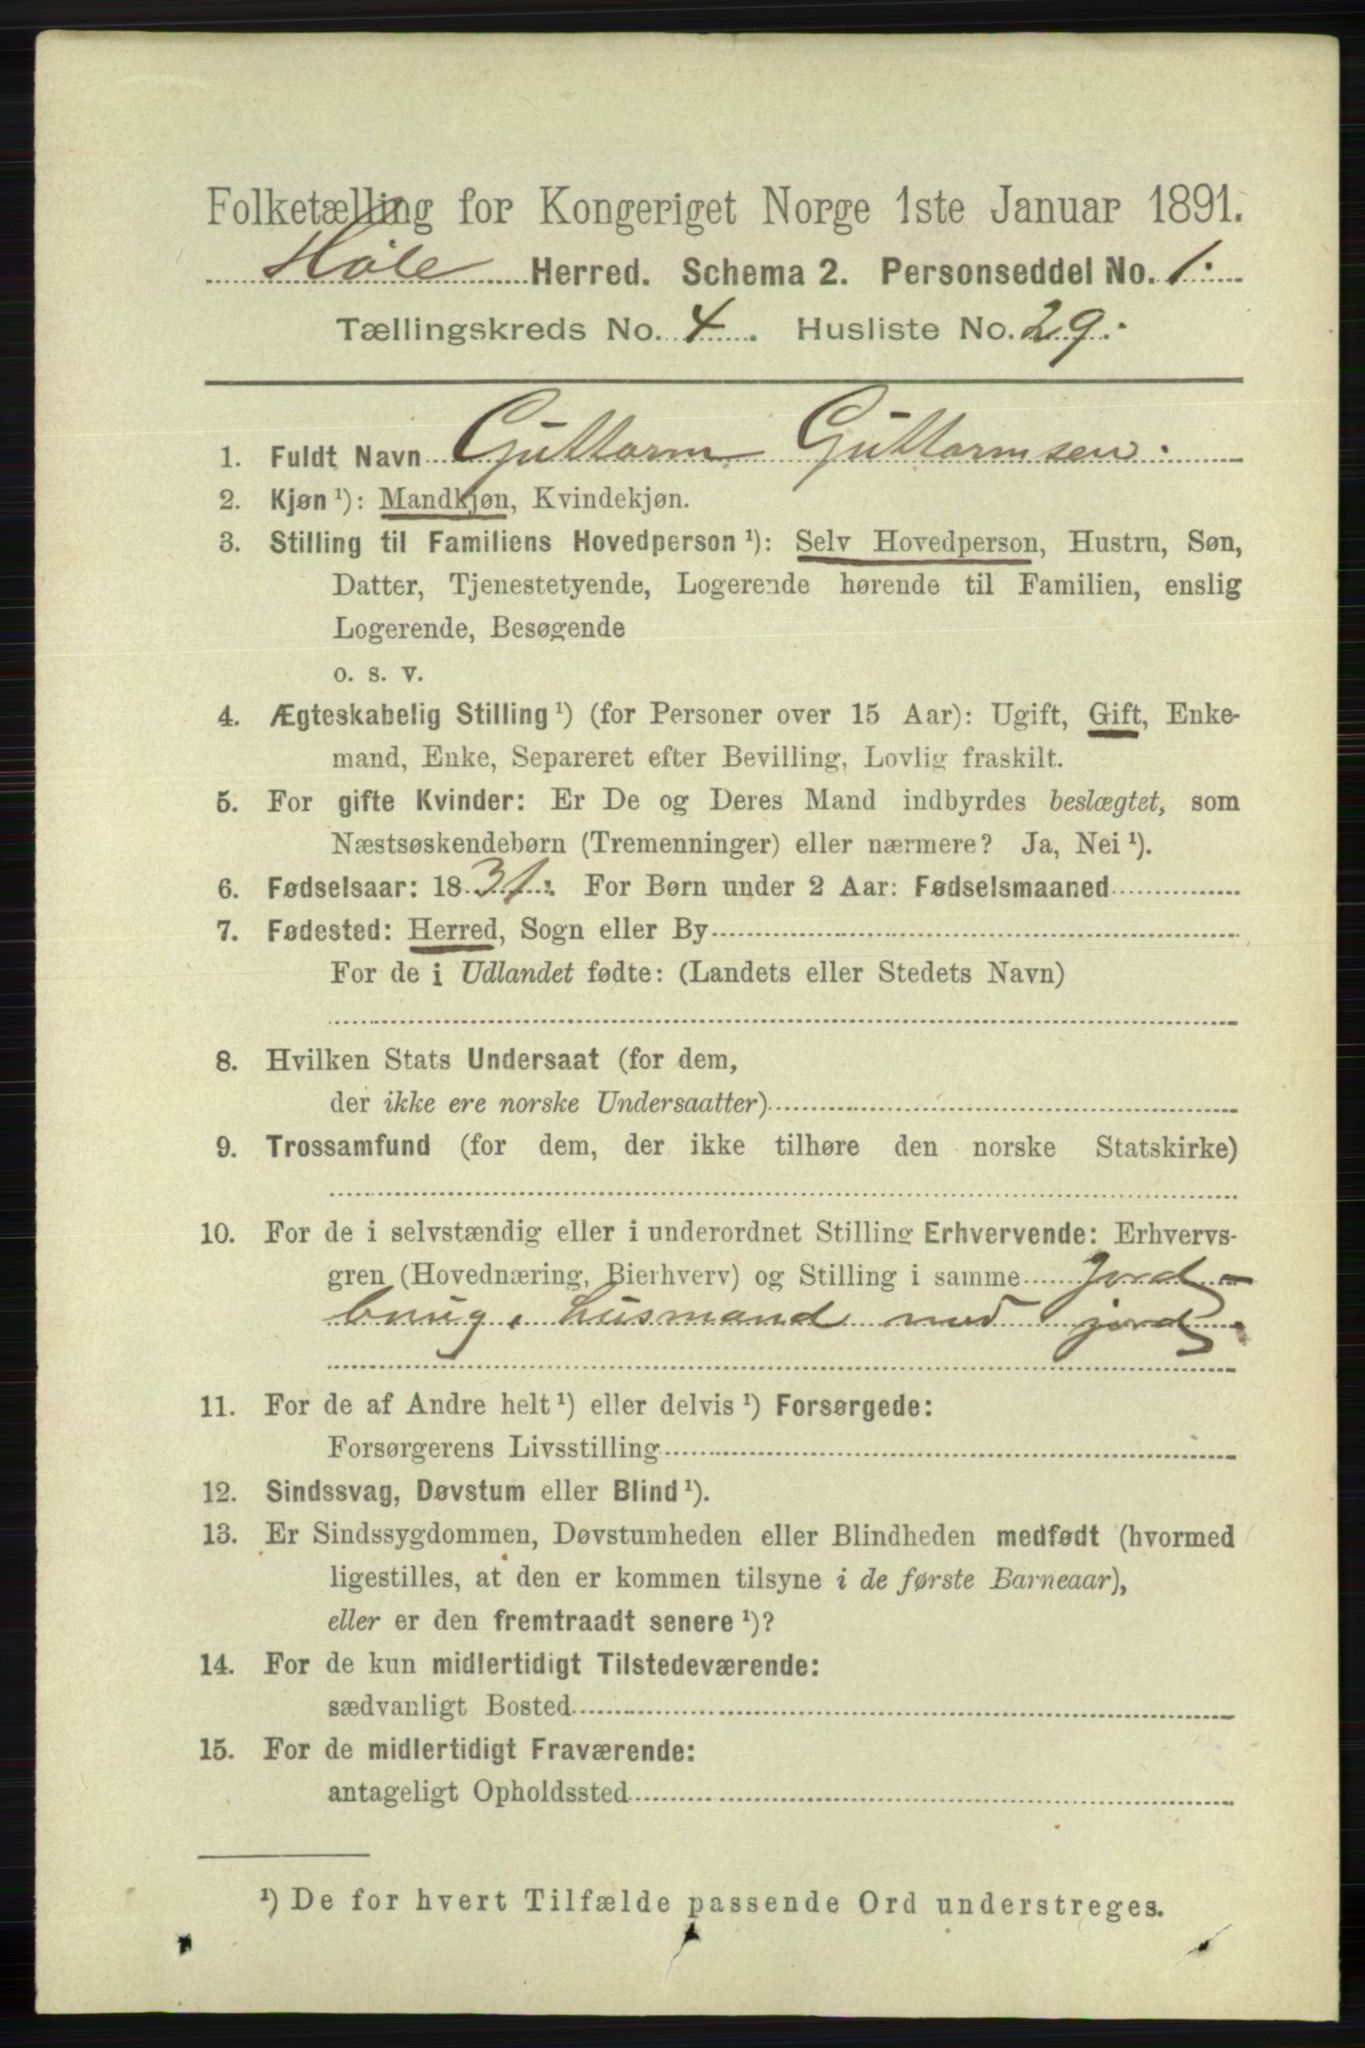 Folketælling for Kongeriget Norge 1ste Januar 1891.
Hole Herred. Schema 2. Personseddel No. 1.
Tællingskreds No. 4. Husliste No. 29.
1. Fuldt Navn Guttorm Guttormsen.
2. Kjøn ¹): Mandkjøn, Kvindekjøn.
3. Stilling til Familiens Hovedperson ¹): Selv Hovedperson, Hustru, Søn,
Datter, Tjenestetyende, Logerende hørende til Familien, enslig
Logerende, Besøgende
o. s. v.
4. Ægteskabelig Stilling ¹) (for Personer over 15 Aar): Ugift, Gift, Enke-
mand, Enke, Separeret efter Bevilling, Lovlig fraskilt.
5. For gifte Kvinder: Er De og Deres Mand indbyrdes beslægtet, som
Næstsøskendebørn (Tremenninger) eller nærmere? Ja, Nei ¹).
6. Fødselsaar: 1831. For Børn under 2 Aar: Fødselsmaaned
7. Fødested: Herred, Sogn eller By
For de i Udlandet fødte: (Landets eller Stedets Navn)
8. Hvilken Stats Undersaat (for dem,
der ikke ere norske Undersaatter)
9. Trossamfund (for dem, der ikke tilhøre den norske Statskirke)
10. For de i selvstændig eller i underordnet Stilling Erhvervende: Erhvervs-
gren (Hovednæring, Bierhverv) og Stilling i samme Jord-
brug, husmand med jord.
11. For de af Andre helt ¹) eller delvis ¹) Forsørgede:
Forsørgerens Livsstilling
12. Sindssvag, Døvstum eller Blind ¹).
13. Er Sindssygdommen, Døvstumheden eller Blindheden medfødt (hvormed
ligestilles, at den er kommen tilsyne i de første Barneaar),
eller er den fremtraadt senere ¹)?
14. For de kun midlertidigt Tilstedeværende:
sædvanligt Bosted
15. For de midlertidigt Fraværende:
antageligt Opholdssted
¹) De for hvert Tilfælde passende Ord understreges.